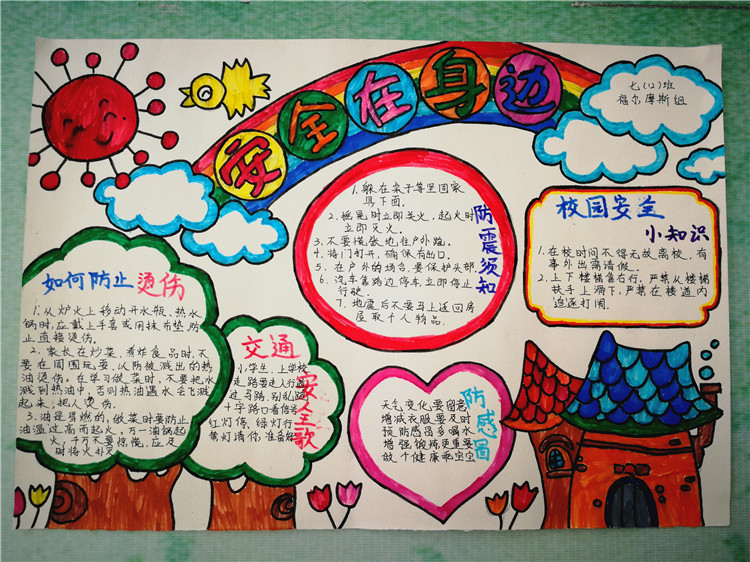 安全在身边
七(12)班
福尔摩斯组
防震须知
1. 躲在桌子等坚固家
具下面。
2. 摇晃时立即关火，起火时
立即灭火。
3. 不要慌张地往户外跑。
4. 将门打开，确保有出口。
5. 在户外的场合，要保护头部
6. 汽车靠路边停车，立即停止
行驶。
7. 地震后不要马上返回房
屋取个人物品。
校园安全
小知识
1. 在校时间不得无故离校，有
事外出需请假。
2. 上下楼梯靠右行，严禁从楼梯
扶手上滑下，严禁在楼道内
追逐打闹。
如何防止烫伤
1. 从炉火上移动开水瓶、热水
锅时，应戴上手套或用抹布垫防
止直接烫伤。
2. 家长在炒菜、煮炸食品时，不
要在周围玩耍，以防被溅出的热
油烫伤，在学习做菜时，不要把水
溅到热油中，否则热油遇水会飞溅
起来，把人烫伤。
3. 油是易燃的，做菜时要防止
油温过高而起火，万一油锅起
火，千万不要惊慌，应及
时将火扑灭
交通
安全歌
小学生，上学校
走路要走人行道
过马路，别乱跑
十字路口看信号
红灯停，绿灯行
黄灯请你，准备好
防感冒
天气变化要留意
增减衣服要及时
预防感冒多喝水
增强锻炼更重要
做个健康乖宝宝